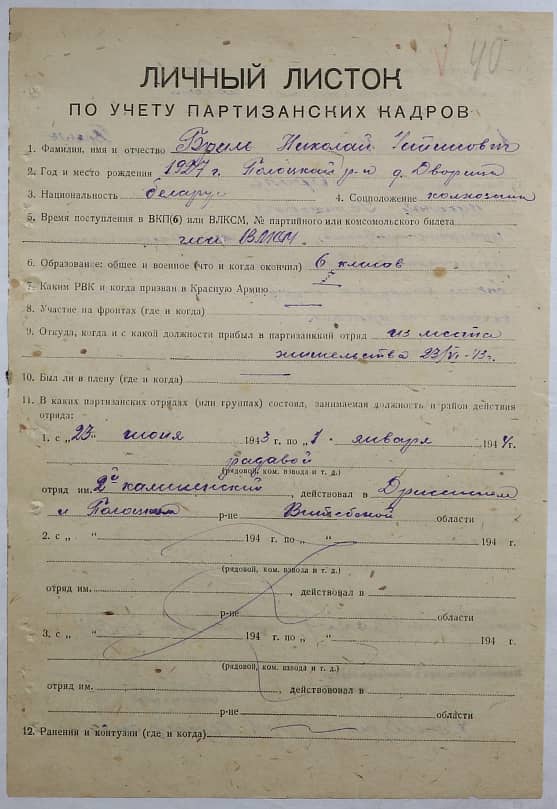 40
ЛИЧНЫЙ ЛИСТОК
ПО УЧЕТУ ПАРТИЗАНСКИХ КАДРОВ
1. Фамилия, имя и отчество Николай
2. Год и место рождения 1927 г. Полоцкий р-н д. Дворища
3. Национальность беларус 4. Соцположение колхозник
5. Время поступления в ВКП(б) или ВЛКСМ, № партийного или комсомольского билета
член ВЛКСМ.
6. Образование: общее и военное (что и когда окончил) 6 класов
7. Каким РВК и когда призван в Красную Армию —
8. Участие на фронтах (где и когда) —
9. Откуда, когда и с какой должности прибыл в партизанкий отряд из места
жительства 23/VI-43г.
10. Был ли в плену (где и когда) —
11. В каких партизанских отрядах (или группах) состоял, занимаемая должность и район действия
отряда:
1. с „23" июня 1943 г. по „1 - января 1944 г.
радавой
(рядовой, ком. взвода и т. д.)
отряд им. 2й калининский, действовал в Дриссенском
и Полоцком р-не Витебской области
2. с „ " 194 г. по „ " 194 г.
(рядовой, ком. взвода и т. д.)
отряд им. , действовал в
р-не области
3. с „ " 194 г. по „ " 194 г.
(рядовой, ком. взвода и т. д.)
отряд им. , действовал в
р-не области
12. Ранения и контузии (где и когда) —